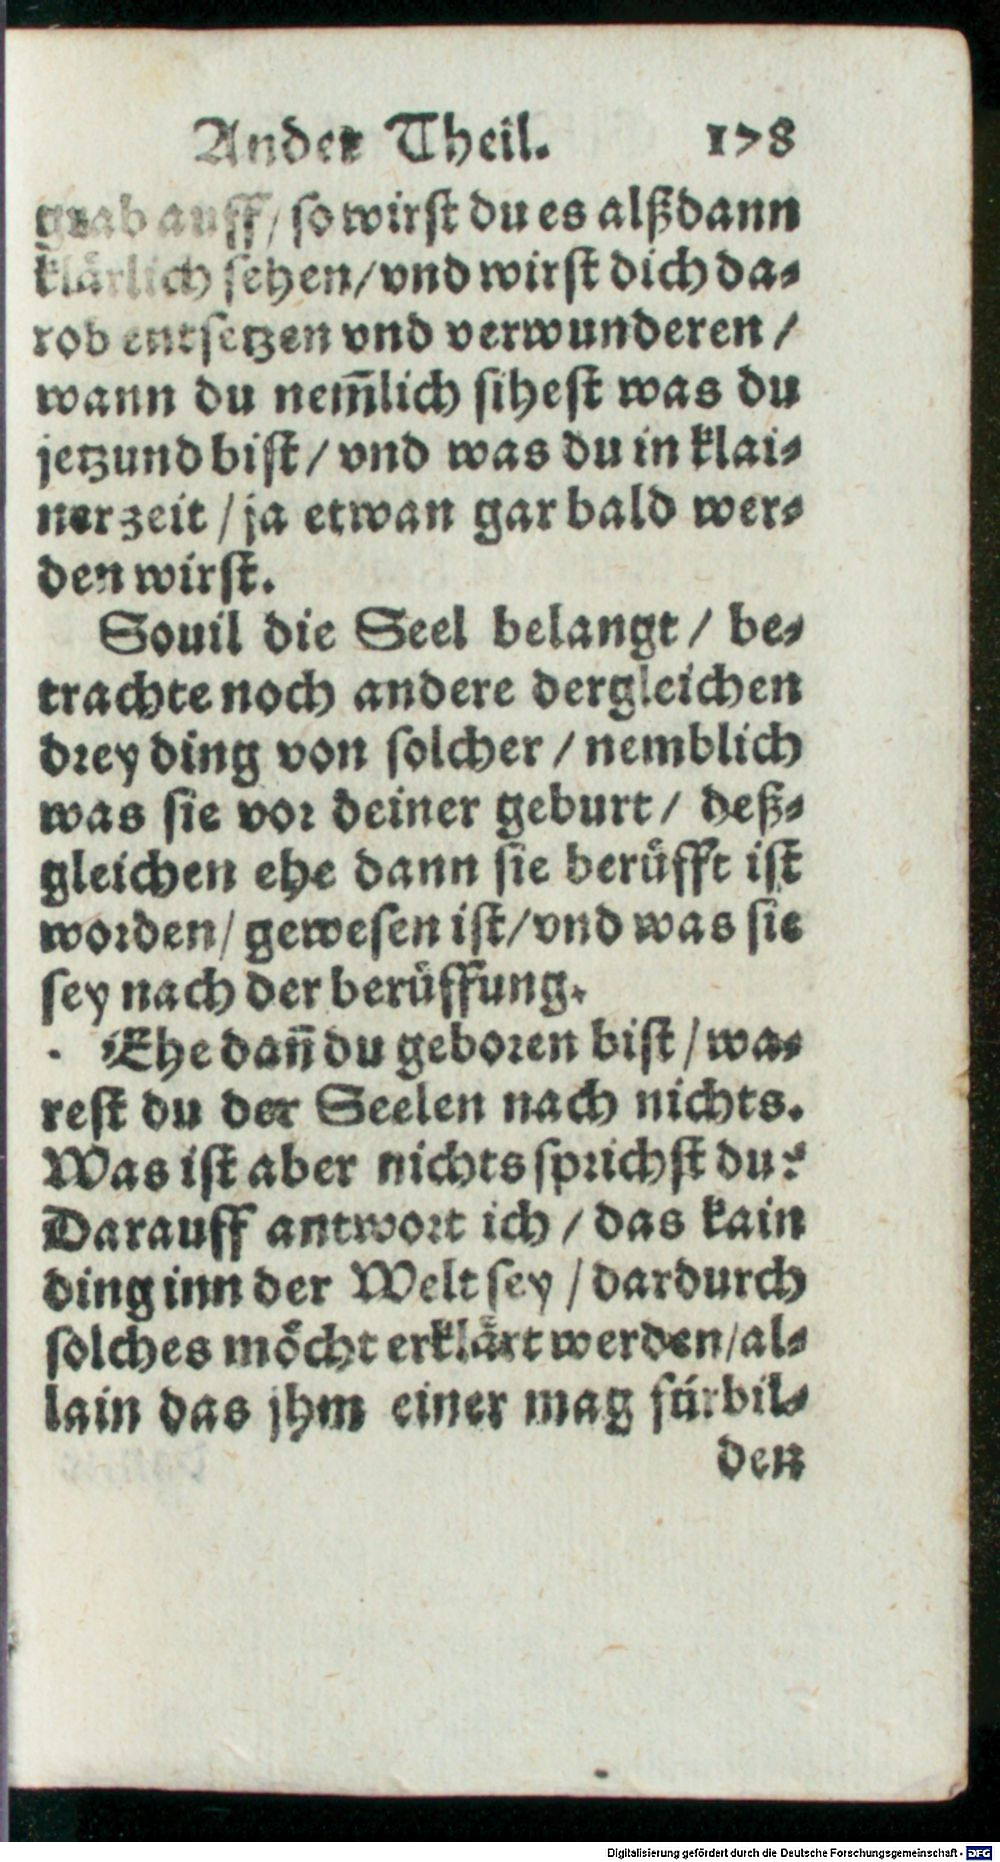 Ander Theil. 178
grab auff/ so wirst du es alßdann
klärlich sehen/ vnd wirst dich da-
rob entsetzen vnd verwunderen/
wann du nem̄lich sihest was du
jetzund bist/ vnd was du in klai-
ner zeit/ ja etwan gar bald wer-
den wirst.
Souil die Seel belangt/ be-
trachte noch andere dergleichen
drey ding von solcher/ nemblich
was sie vor deiner geburt/ deß-
gleichen ehe dann sie berüfft ist
worden/ gewesen ist/ vnd was sie
sey nach der berüffung.
Ehe dañ du geboren bist/ wa-
rest du der Seelen nach nichts.
Was ist aber nichts sprichst du?
Darauff antwort ich/ das kain
ding inn der Welt sey/ dardurch
solches möcht erklärt werden/ al-
lain das jhm einer mag fürbil-
den
Digitalisierung gefördert durch die Deutsche Forschungsgemeinschaft - DFG